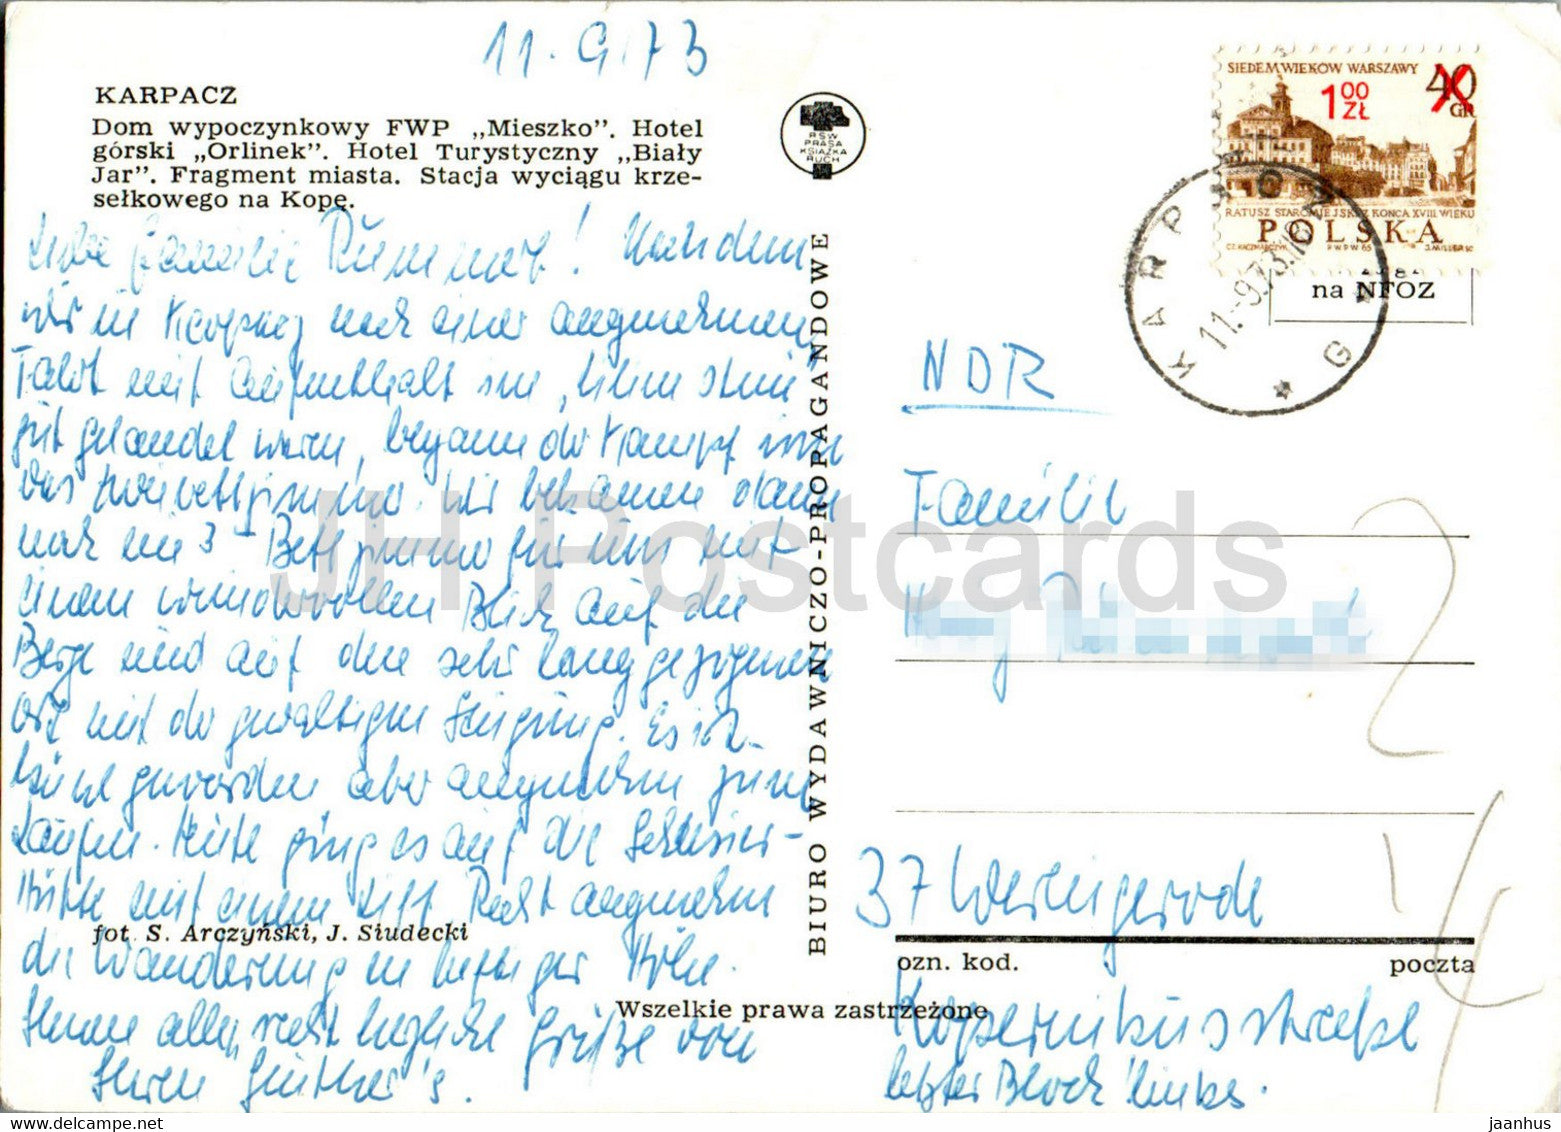 11.9.73
KARPACZ
Dom wypoczynkowy FWP „Mieszko”. Hotel
górski „Orlinek”. Hotel Turystyczny „Biały
Jar”. Fragment miasta. Stacja wyciągu krze-
sełkowego na Kopę.
Liebe Familie ! Nachdem
wir in Karpacz nach einer angenehmen
Fahrt mit Aufenthalt im
gut gelandet waren, begann der Kampf um
das Zweibettzimmer. Wir bekamen dann
noch ein 3-Bettzimmer für uns mit
einem wundervollen Blick auf die
Berge und auf den sehr langgezogenen
Ort mit der gewaltigen Steigung. Es ist
kühl geworden aber angenehm zum
Laufen. Heute ging es auf die Schlesier-
Hütte mit einem Lift. Recht angenehm
die Wanderung in luftiger Höhe.
Ihnen allen recht herzliche Grüße von
Ihren Günther's.
fot. S. Arczyński, J. Siudecki
BIURO WYDAWNICZO-PROPAGANDOWE
RSW
PRASA
KSIĄŻKA
RUCH
Wszelkie prawa zastrzeżone
SIEDEM WIEKÓW WARSZAWY
40
GR
1 00
ZŁ
RATUSZ STAROMIEJSKI Z KOŃCA XVIII WIEKU
POLSKA
CZ. KACZMARCZYK P.W.P.W. 65 J. MILLER SC.
KARPACZ
11.-9.73.
G
na NFOZ
NDR
Familie
37 Wernigerode
ozn. kod. poczta
Kopernikusstraße
letzter Block links.
JH Postcards
jaanhus www.delcampe.net